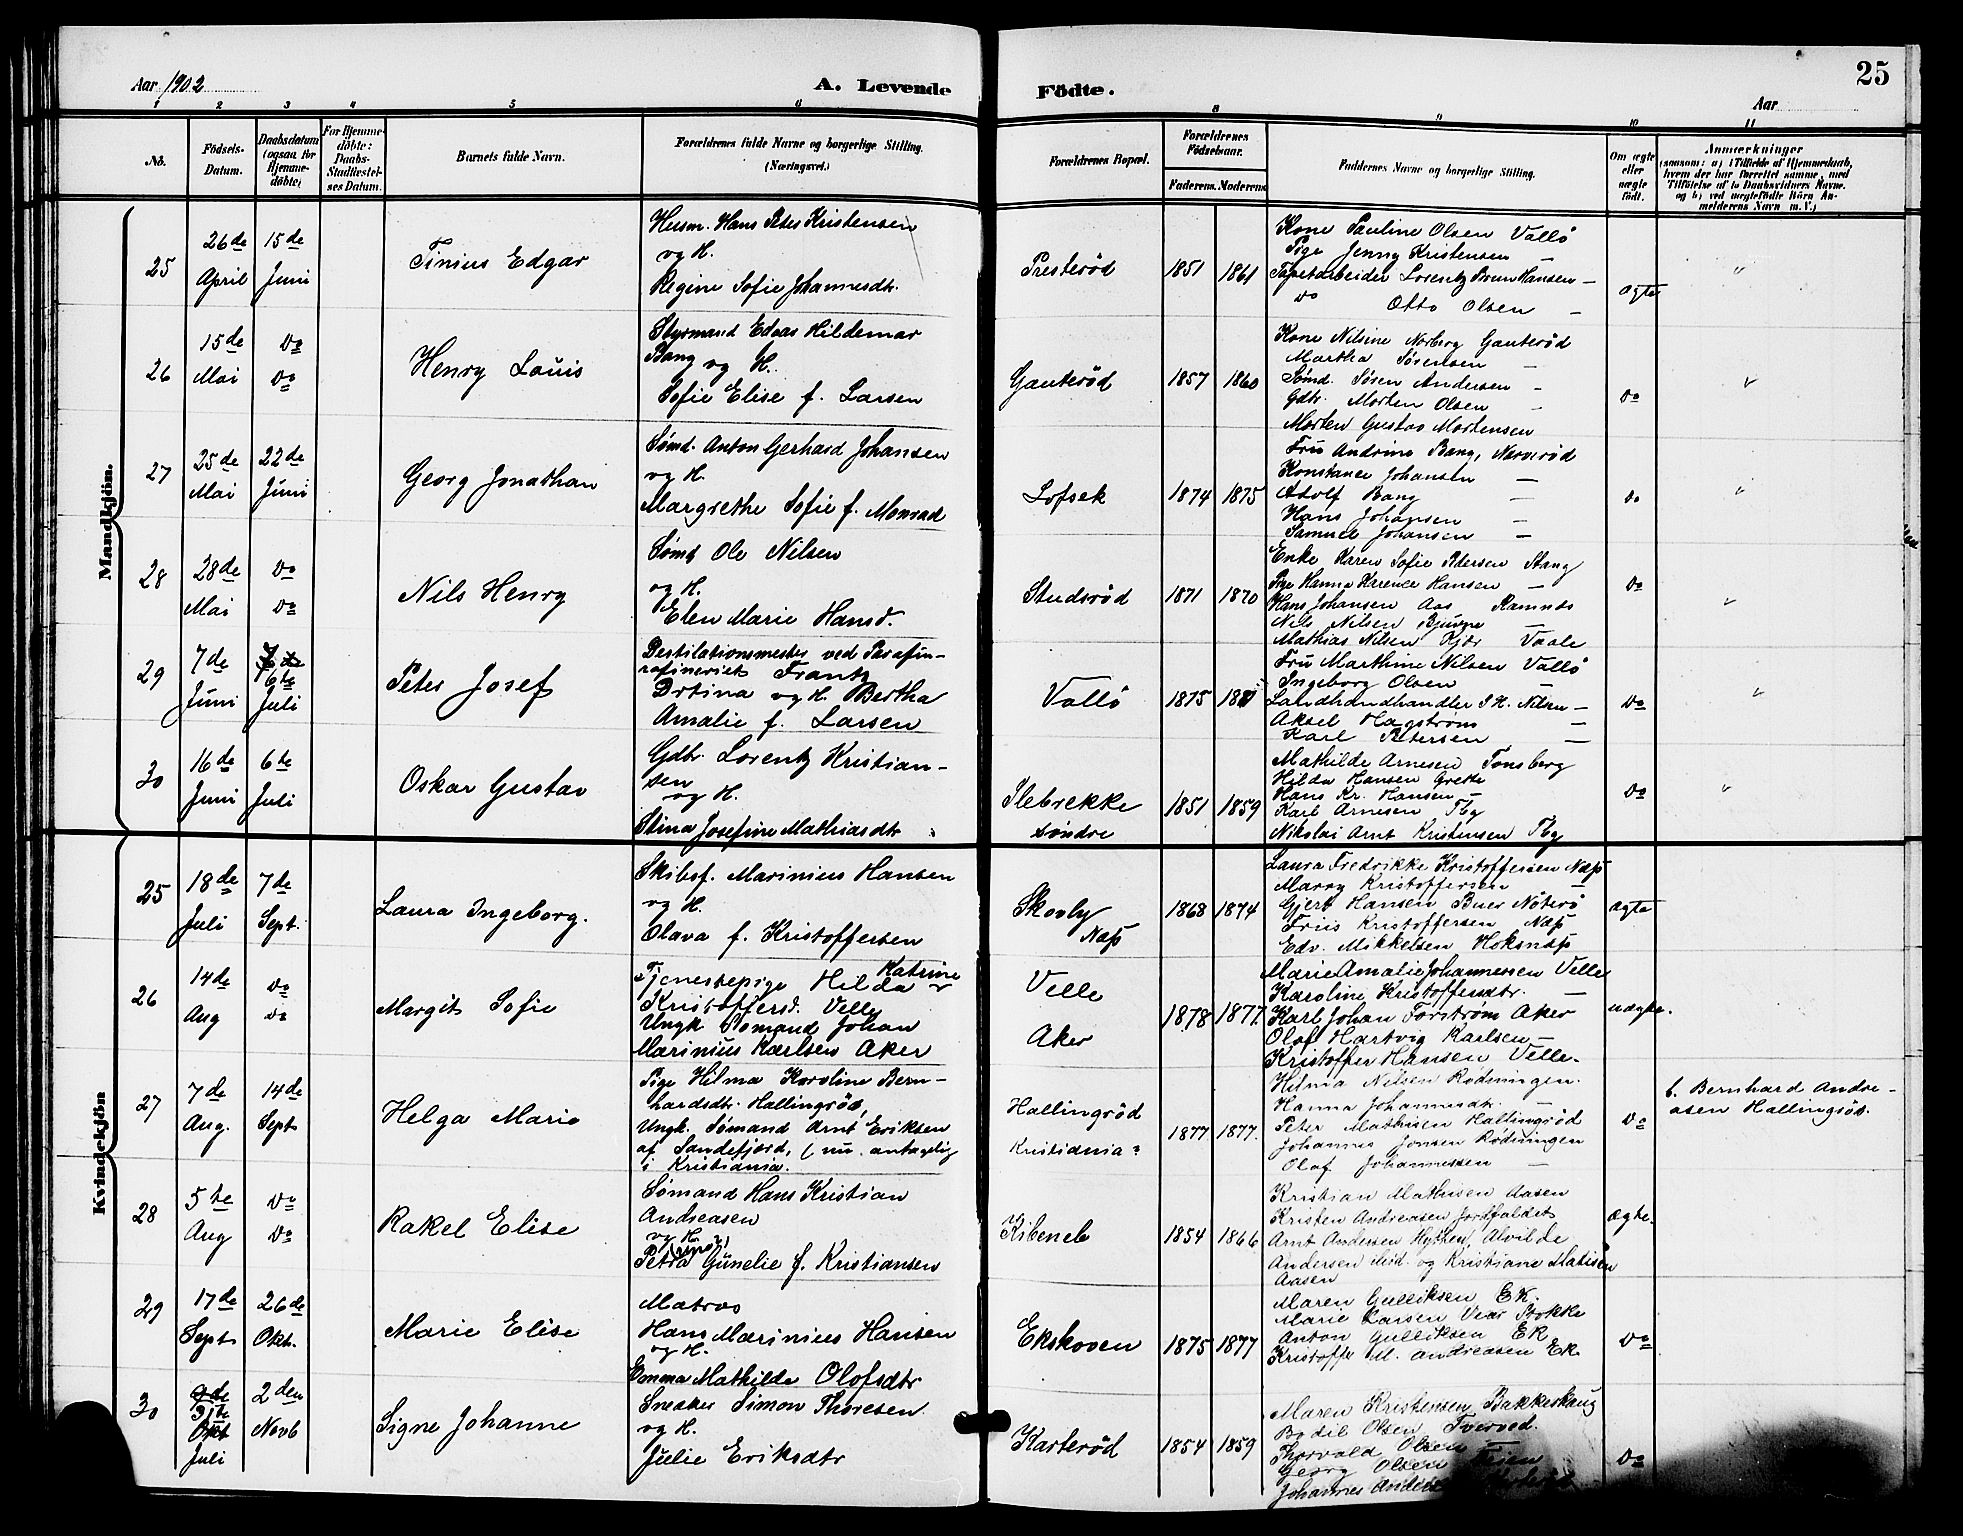 Aar 1902
A. Levende
Födte.
25
Aar
1 2 3 4 5 6 8 9 10 11
No.
Födsels-
Datum.
Daabsdatum
(ogsaa for
Hjemme-
döbte)
For Hjemme-
döbte:
Daabs-
Stadfæstel-
ses Datum.
Barnets fulde Navn.
Forældrenes fulde Navne og borgerlige Stilling.
(Næringsvei.)
Forældrenes Bopæl.
Forældrenes
Födselsaar.
Faderens. Moderens.
Faddernes Navne og borgerlige Stilling.
Om ægte
eller
uægte
födt.
Anmærkninger
(saasom: a) i Tilfælde af Hjemmedaab,
hvem der har forrettet samme, med
Tilföielse af to Daabsvidners Navne.
og b) ved uægtefödte Börn An-
melderens Navn m. V.)
Mandkjön.
25
26de
April
15de
Juni
Tinius Edgar
Husm. Hans Peter Kristensen
og H.
Regine Sofie Johannesdtr.
Presterød
1851
1861
Kone Pauline Olsen Vallö
Pige Jenny Kristensen —
Tapetarbeider Lorentz Brun Hansen —
do Otto Olsen —
ægte
"
26
15de
Mai
do
do
Henry Louis
Styrmand Edvas Hildemar
Bang og H.
Sofie Elise f. Larsen
Gauterød
1857
1860
Kone Nilsine Norberg Gauterød
Martha Sørensen —
Sømd. Søren Andersen —
Gdbr. Morten Olsen —
Morten Gustav Mortensen
do
"
27
25de
Mai
22de
Juni
Georg Jonathan
Sømd. Anton Gerhard Johansen
og H.
Margrethe Sofie f. Monrad
Lofsek
1874
1875
Fru Andrine Bang, Narverød
Konstance Johansen —
Adolf Bang —
Hans Johansen —
Samuel Johansen —
do
"
28
28de
Mai
do
do
Nils Henry
Sømd Ole Nilsen
og H.
Elen Marie Hansd.
Studsrød
1871
1870
Enke Karen Sofie Pedersen Stang
Pige Hanna Karence Hansen —
Hans Johansen Aas Ramnes
Nils Nilsen Bjuerge —
Mathias Nilsen Kjær Vaale
do
"
29
7de
Juni
6te
Juli
Peter Josef
Destilationsmester ved Parafin-
rafineriet Frantz
Drtina og H. Bertha
Amalie f. Larsen
Vallö
1875
188
Fru Marthine Nilsen Vallö
Ingeborg Olsen
Landhandhandler S. H. Nilsen —
Aksel Hagstrøm —
Karl Petersen —
do
"
30
16de
Juni
6te
Juli
Oskar Gustav
Gdbr. Lorentz Kristian-
sen
og H.
Stina Josefine Mathiasdtr
Ilebrekke
søndre
1851
1859
Mathilde Arnesen Tønsberg
Hilda Hansen Grette
Hans Kr. Hansen —
Karl Arnesen Tbg
Nikolai Arnt Kristensen Tbg
do
"
Kvindekjön
25
18de
Juli
7de
Sept.
Laura Ingeborg.
Skibsf. Marinius Hansen
og H.
Olava f. Kristoffersen
Skovly
Næs
1868
1874
Laura Fredrikke Kristoffersen Næs
Marry Kristoffersen —
Gjert Hansen Buer Nøterö
Friis Kristoffersen Næs
Edv. Mikkelsen Hoksnæs
ægte
26
14de
Aug
do
do
Margit Sofie
Tjenestepige Hilda Katrine
Kristoffersd. Velle
Ungk Sømand Johan
Marinius Karlsen Aker
Velle
Aker
1878
1877.
Marie Amalie Johannessen Velle
Karoline Kristoffersdtr. —
Karl Johan Forstrøm Aker
Olaf Hartvig Karlsen —
Kristoffer Hansen Velle.
uægte.
27
7de
Aug.
14de
Sept
Helga Marie
Pige Hilma Karoline Bern-
hardsdtr. Hallingrød,
Ungk. Sømand Arnt Eriksen
af Sandefjord, (nu antagelig
i Kristiania.
Hallingrød
Kristiania?
1877
1877.
Hilma Nilsen Rødningen.
Hanna Johannesdtr. —
Peter Mathisen Hallingrød
Johannes Jonsen Rødningen
Olaf Johannessen —
do
b. Bernhard Andre-
asen Hallingrød.
28
5te
Aug
do
do
Rakel Elise
Sømand Hans Kristian
Andreasen
og H.
Petra Gunelie f. Kristiansen
Kibeneb
1854
1866
Kristian Mathisen Aasen
Kristen Andreasen Jordfaldet
Arnt Andersen Hytten, Alvilde
Andersen ibid. og Kristiane Matisen
Aasen
ægte.
29
17de
Sept
26de
Okt.
Marie Elise
Matros
Hans Marinius Hansen
og H.
Emma Mathilde Olofsdtr
Ekskoven
1875
1877
Maren Gulliksen Ek.
Marie Larsen Vear Stokke
Anton Gulliksen Ek
Kristoffer M. Andreasen Ek
do
30
Okt
Juli
2den
Novb
Signe Johanne
Snekker Simon Thoresen
og H.
Julie Eriksdtr
Karterød
1854
1859
Maren Kristensen Bakkeskaug
Bodil Olsen Tverved.
Thorvald Olsen —
Georg Olsen
Johannes
do